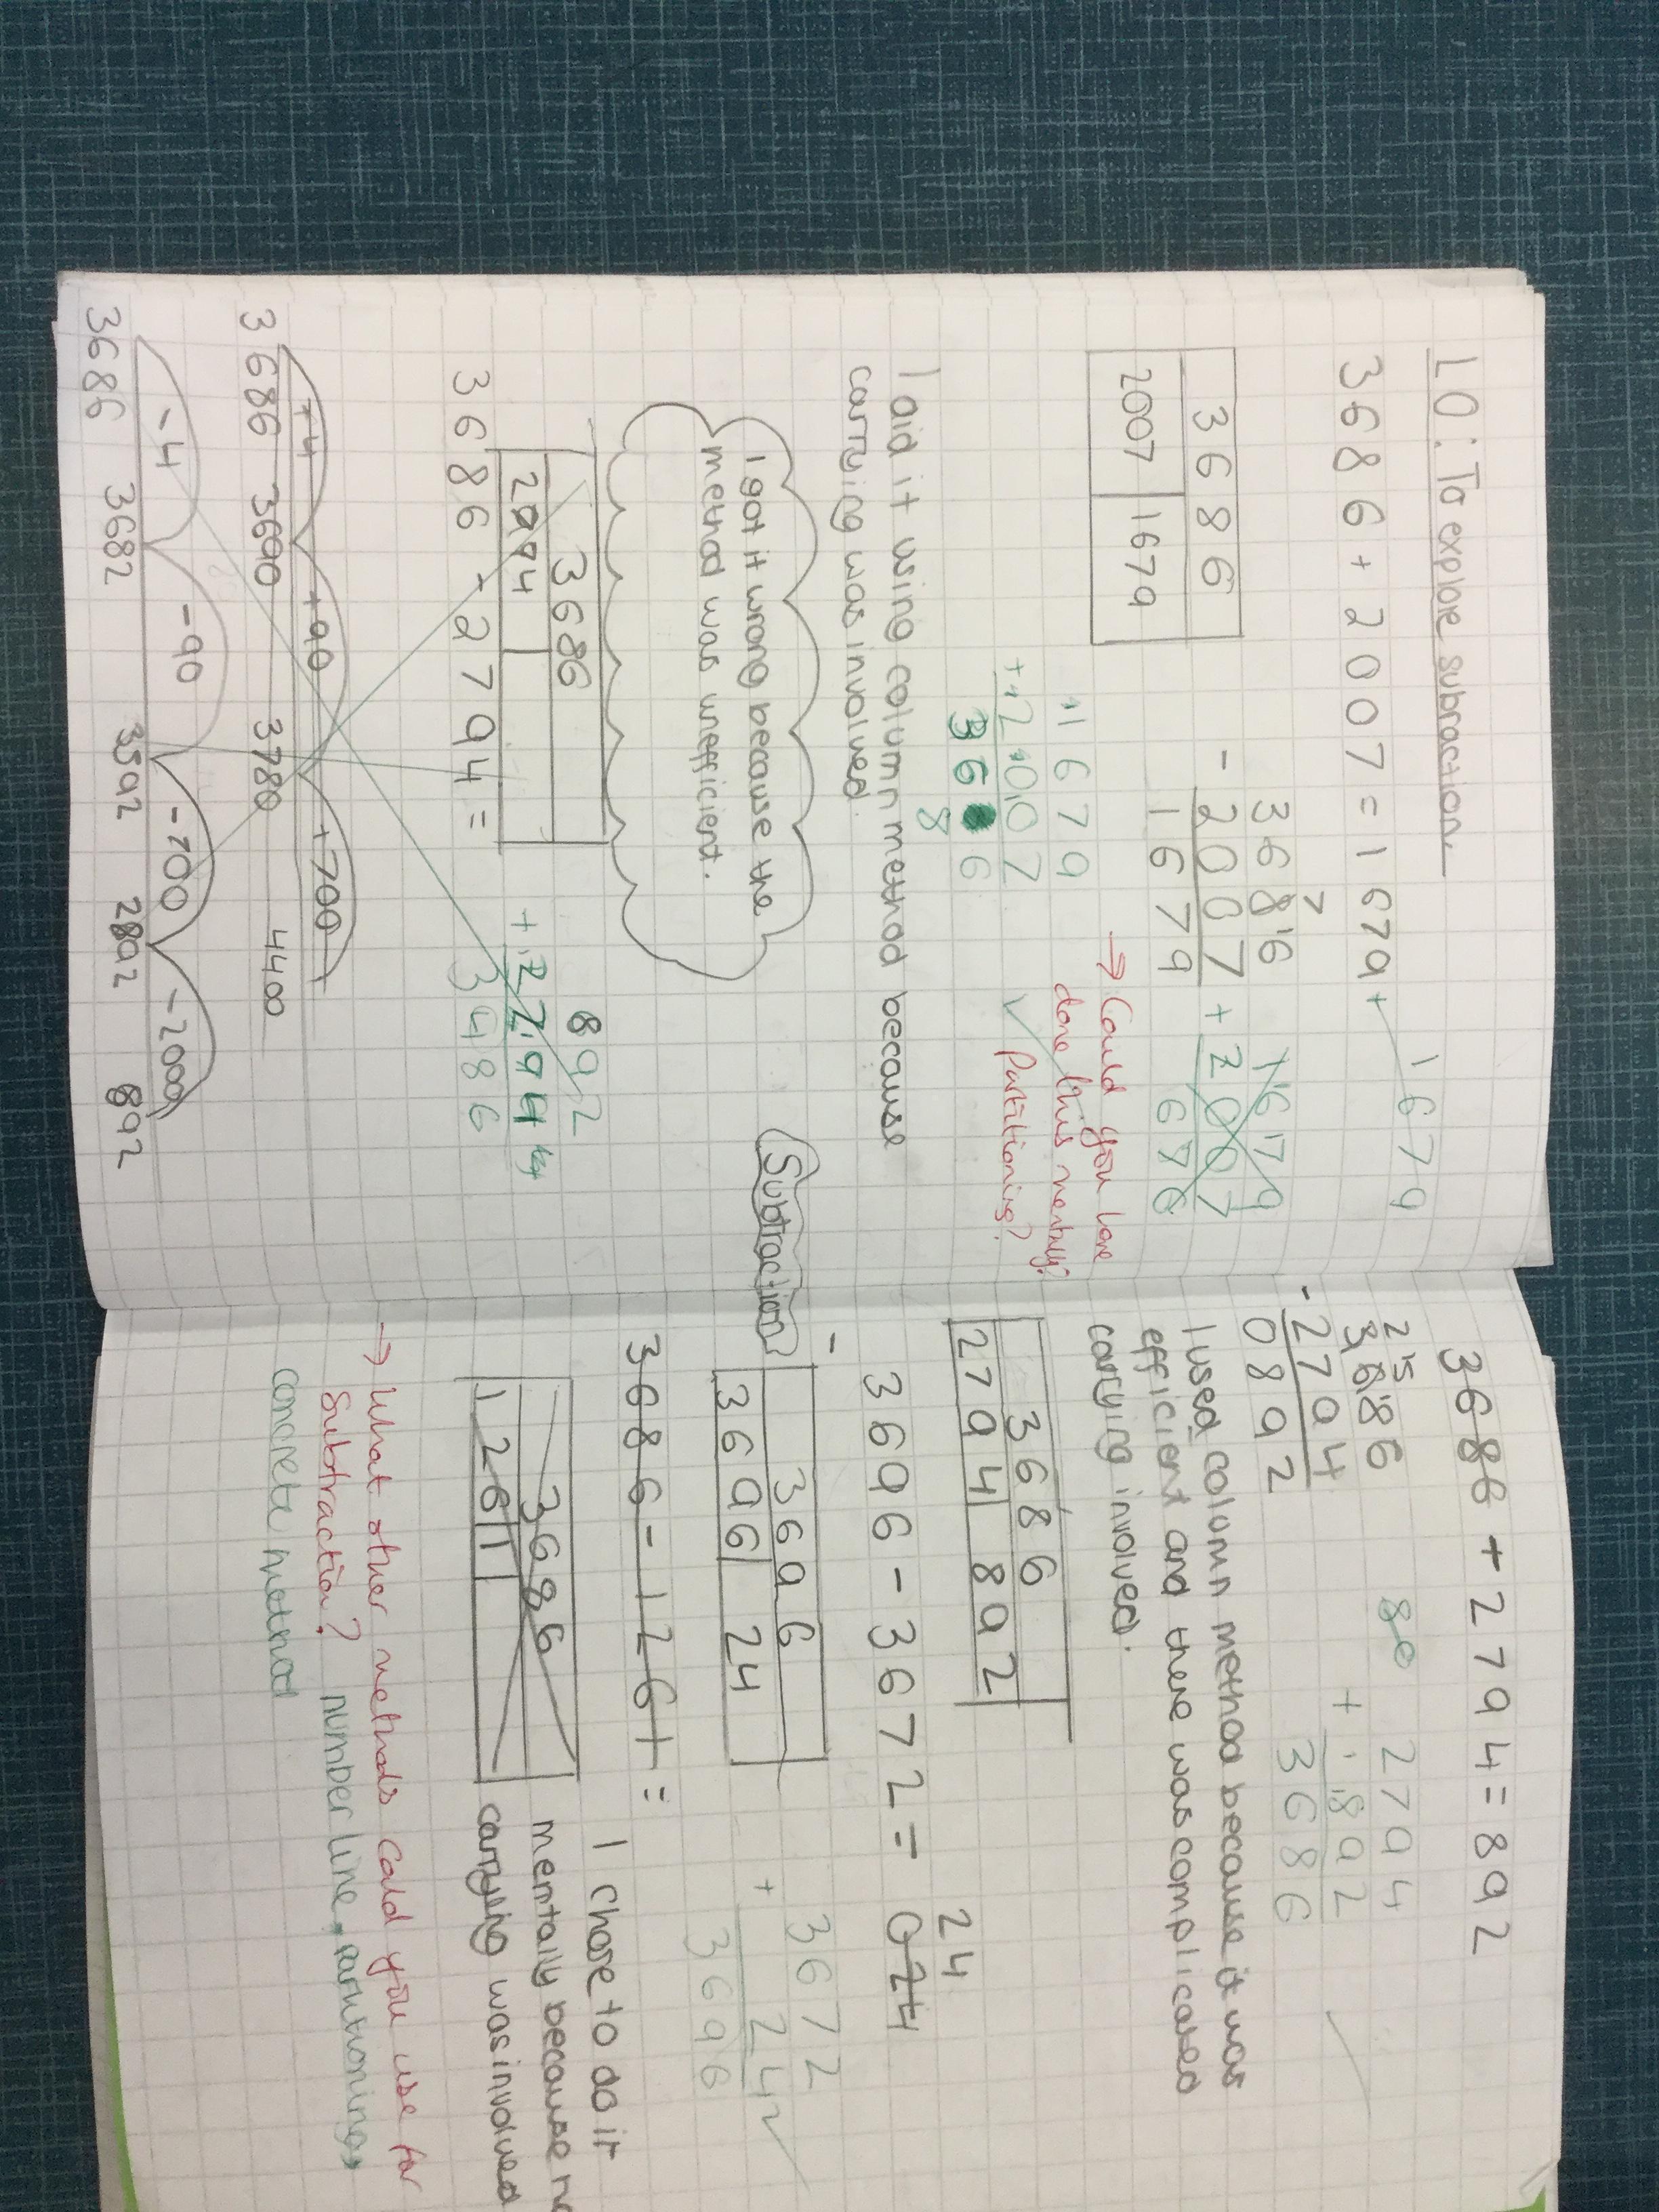 LO: To explore subraction.
3686 + 2007 = 1679
1679
3686
2007 1679
7
3686
- 2007
1679
+ 1679
2007
6 7 8
→ Could you have
done this mentally?
Partitioning?
1679
+ 2007
3 6 6
8
I did it using column method because
carrying was involved.
I got it wrong because the
method was unefficient.
3686
2794
3686 - 2794 =
892
+ 2794
3486
+4 +90 +700
3686 3690 3780 4400
-4 -90 -700 -2000
3686 3682 3592 2892 892
Subtraction
3686 + 2794 = 892
2 5
3686
- 2794
0892
80
2794
+ 892
3686
I used column method because it was
efficient and there was complicated
carrying involved.
3686
2794 892
3696 - 3672 = 024
24
-
3696
3696 24
3672
+ 24
3696
3686 - 1261 =
3686
1261
I chose to do it
mentally because no
carrying was involved
→ What other methods could you use for
Subtraction? number line, partitioning,
concrete method